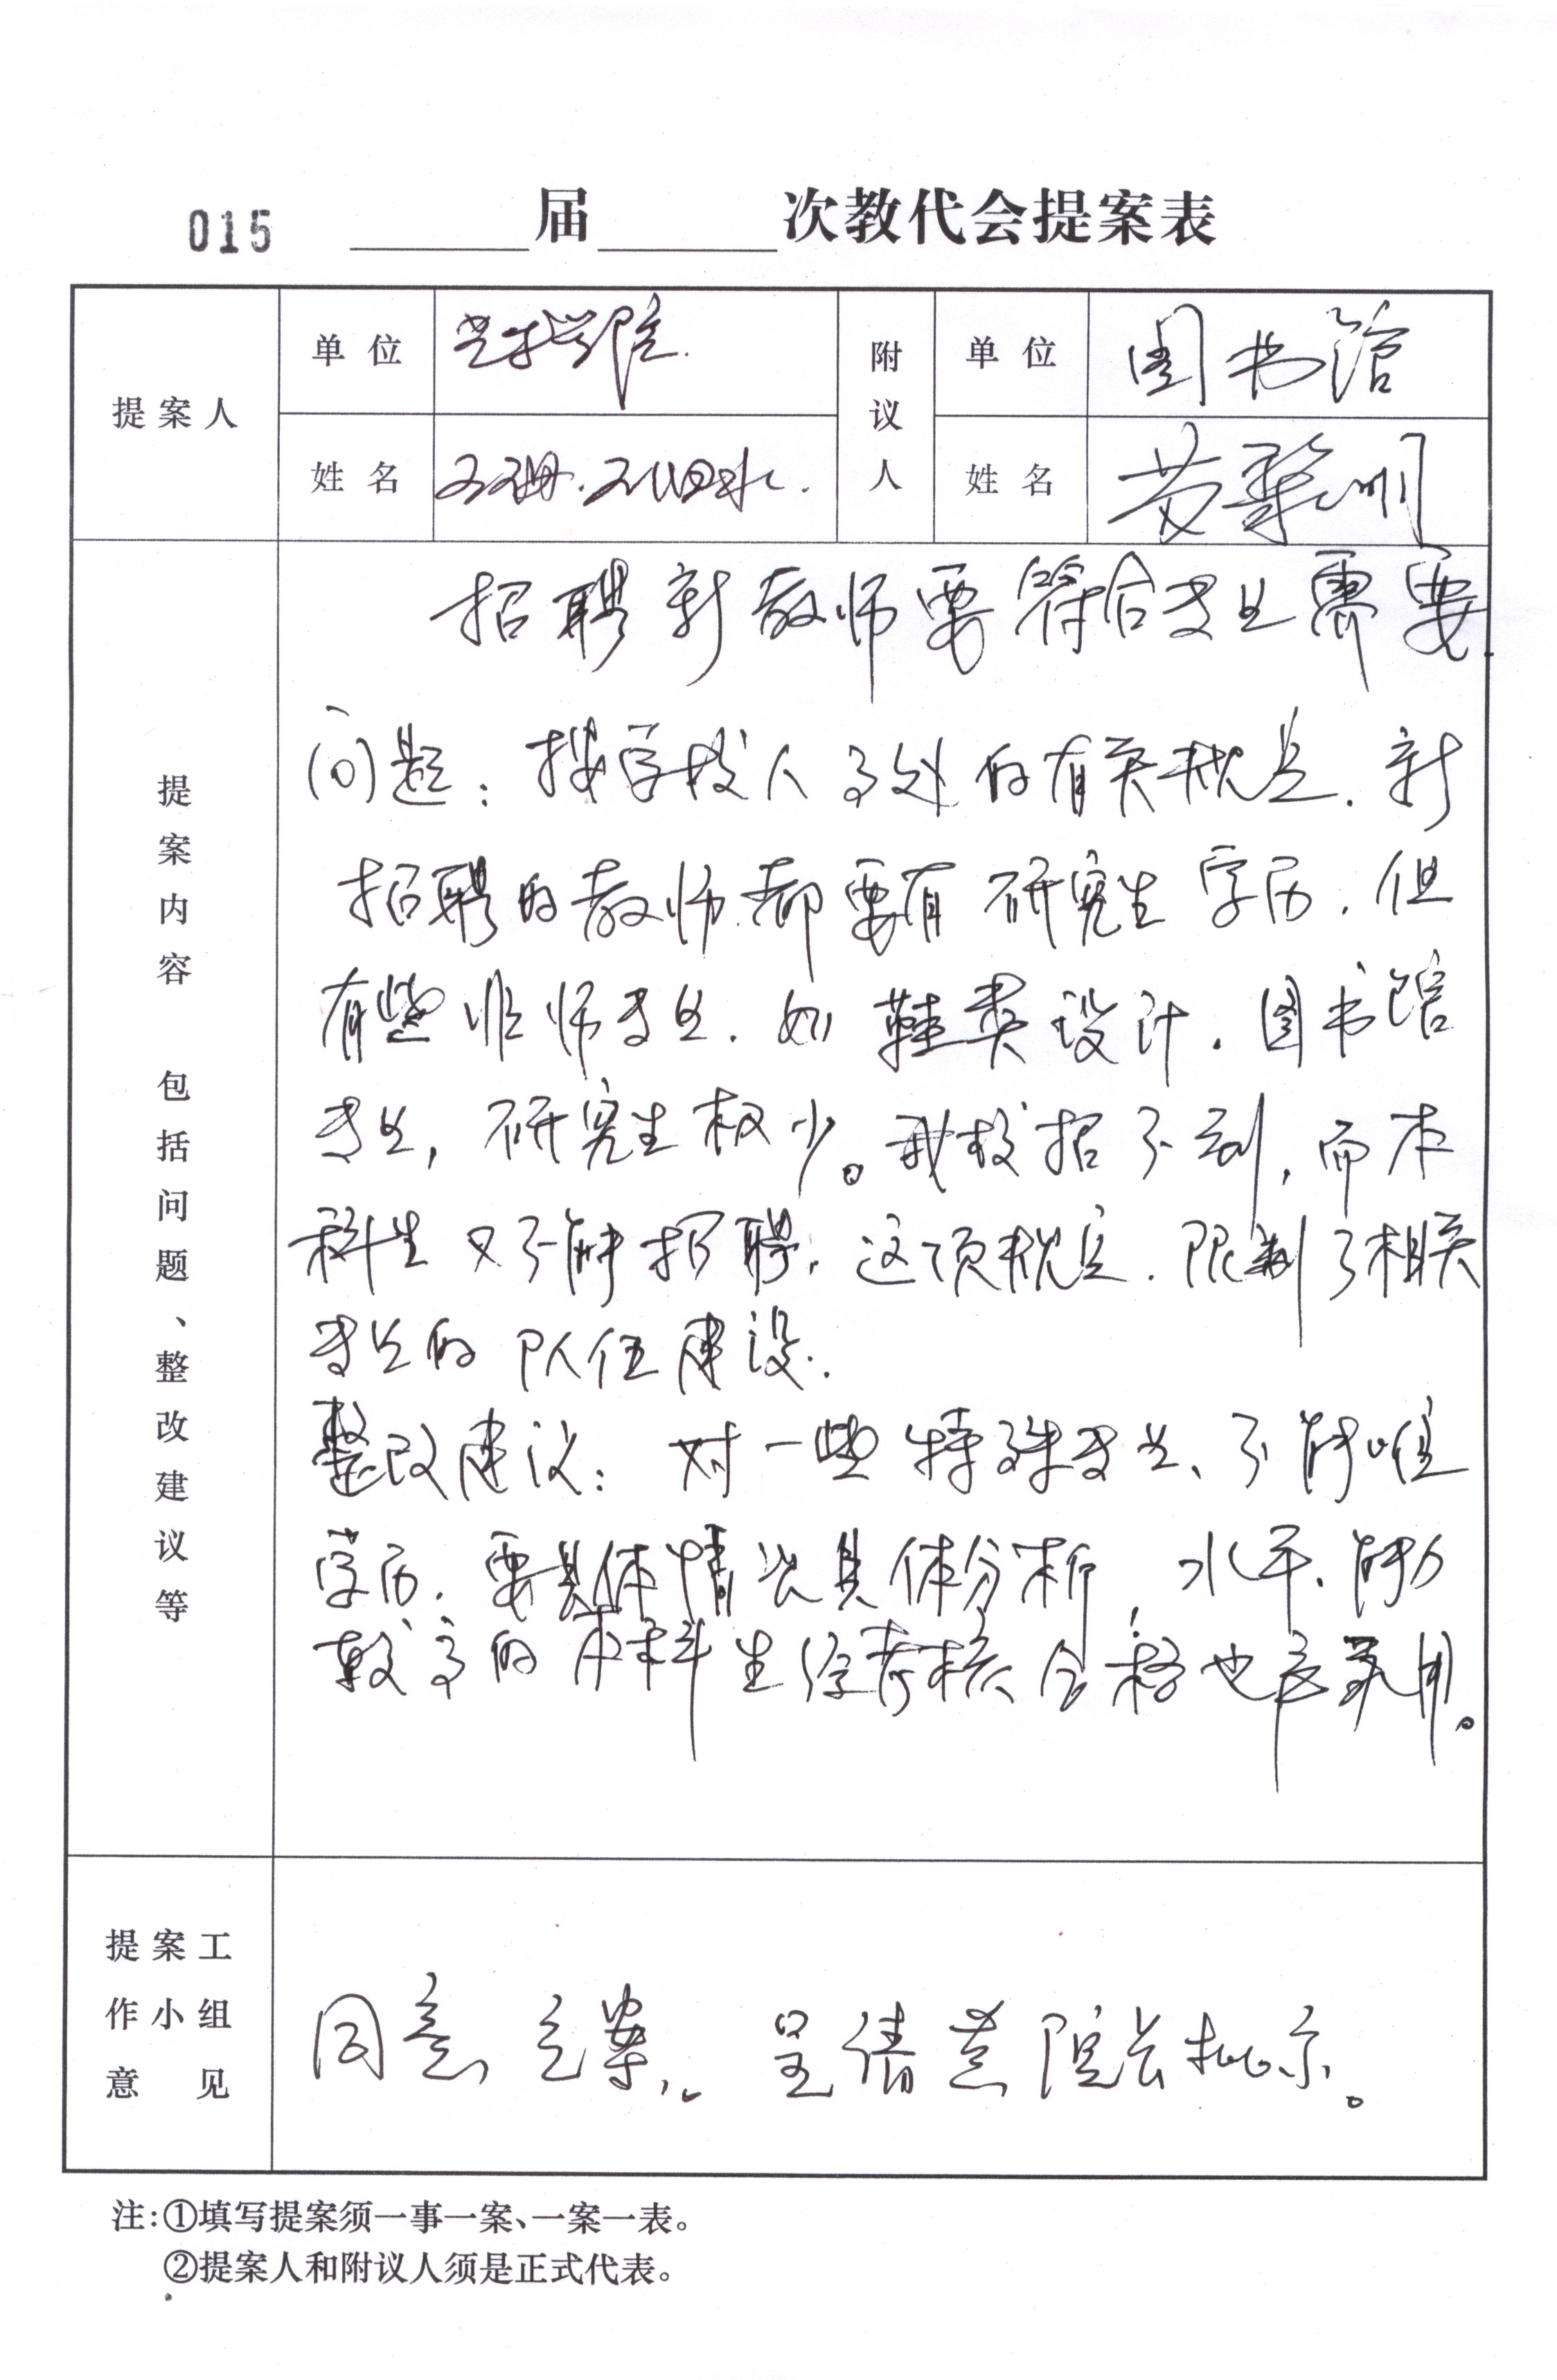 015 届 次教代会提案表
提案人
单位
学院
附议人
单位
图书馆
姓名
姓名
黄
招聘新教师要符合专业需要
提案内容 包括问题、整改建议等
问题：按学校人事处的有关规定，新
招聘的教师都要有研究生学历，但
有些非师专业，如鞋类设计，图书馆
专业，研究生极少。我校招不到，而本
科生又不能招聘，这项规定，限制了相关
专业的队伍建设.
整改建议：对一些特殊专业、不能唯
学历，要具体情况具体分析，水平、能力
较高的本科生经考核合格也应录用。
提案工作小组意见
同意立案。呈请黄院长批示。
注：①填写提案须一事一案、一案一表。
②提案人和附议人须是正式代表。